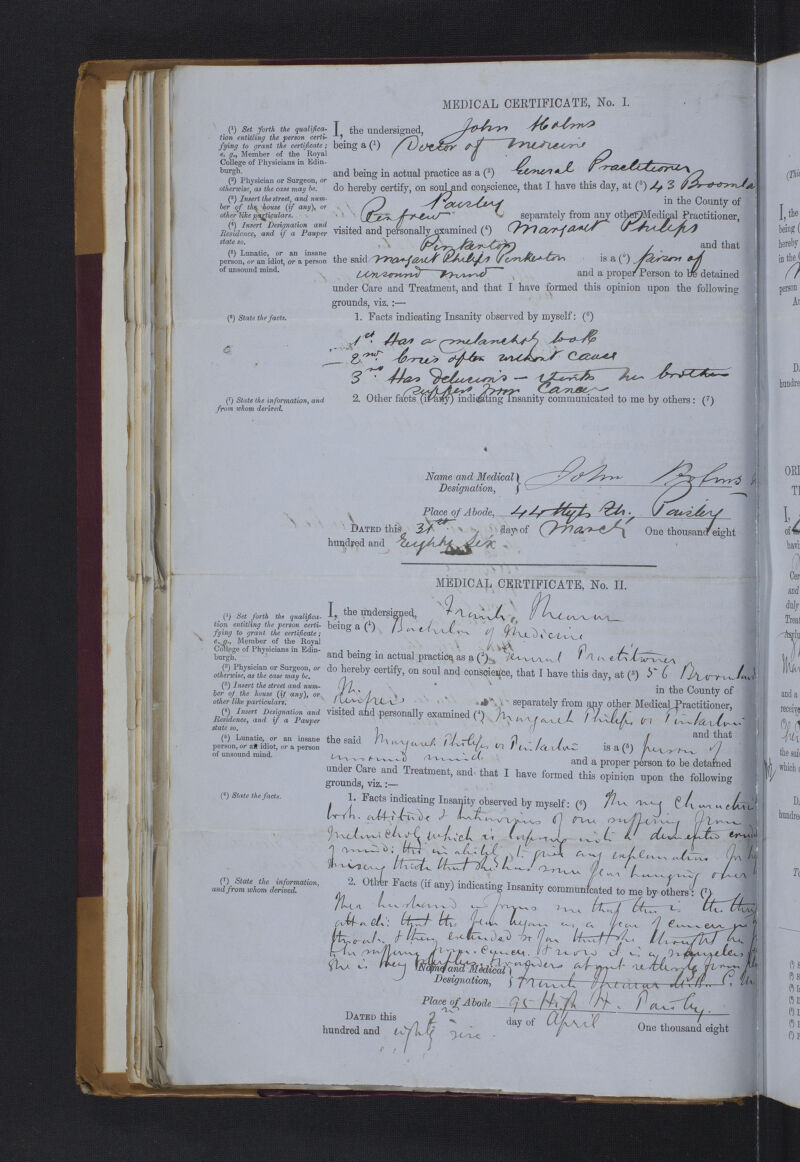 MEDICAL CERTIFICATE, No. I.
(¹) Set forth the qualifica-
tion entitling the person certi-
fying to grant the certificate;
e. g., Member of the Royal
College of Physicians in Edin-
burgh.
(²) Physician or Surgeon, or
otherwise, as the case may be.
(³) Insert the street, and num-
ber of the house (if any), or
other like particulars.
(⁴) Insert Designation and
Residence, and if a Pauper
state so.
(⁵) Lunatic, or an insane
person, or an idiot, or a person
of unsound mind.
I, the undersigned, John Holms
being a (¹) Doctor of Medicine
and being in actual practice as a (²) General Practitioner
do hereby certify, on soul and conscience, that I have this day, at (³) 43 Broomla
Paisley in the County of
Renfrew separately from any other Medical Practitioner,
visited and personally examined (⁴) Margaret Philips
Pinkerton and that
the said Margaret Philips Pinkerton is a (⁵) person of
unsound mind and a proper Person to be detained
under Care and Treatment, and that I have formed this opinion upon the following
grounds, viz. :—
(⁶) State the facts.
1. Facts indicating Insanity observed by myself: (⁶)
1st Has a melancholy look
2nd Cries often without cause
3rd Has delusions – thinks her brother
suffers from Cancer
(⁷) State the information, and
from whom derived.
2. Other facts (if any) indicating Insanity communicated to me by others: (⁷)
Name and Medical Designation, John Holms
Place of Abode, 44 High St., Paisley
DATED this 31st day of March One thousand eight
hundred and Eighty Six
MEDICAL CERTIFICATE, No. II.
(¹) Set forth the qualifica-
tion entitling the person certi-
fying to grant the certificate;
e. g., Member of the Royal
College of Physicians in Edin-
burgh.
(²) Physician or Surgeon, or
otherwise, as the case may be.
(³) Insert the street and num-
ber of the house (if any), or
other like particulars.
(⁴) Insert Designation and
Residence, and if a Pauper
state so.
(⁵) Lunatic, or an insane
person, or an idiot, or a person
of unsound mind.
I, the undersigned,
being a (¹) Bachelor of Medicine
and being in actual practice as a (²) General Practitioner
do hereby certify, on soul and conscience, that I have this day, at (³) 56 Broomland
in the County of
Renfrew separately from any other Medical Practitioner,
visited and personally examined (⁴) Margaret Philips or Pinkerton
and that
the said Margaret Philips or Pinkerton is a (⁵) person of
unsound mind and a proper person to be detained
under Care and Treatment, and that I have formed this opinion upon the following
grounds, viz. :—
(⁶) State the facts.
1. Facts indicating Insanity observed by myself: (⁶) The very
look, attitude & of one suffering from
Melancholy which is into a demented
of mind: the inability to give any explanation for
misery that she had some fear hanging over
(⁷) State the information,
and from whom derived.
2. Other Facts (if any) indicating Insanity communicated to me by others: (⁷)
Her husband informs me that this is the
attack: that the fear began as a fear of cancer
throat, & then extended so far that she thought her
suffering from cancer. & now it is a
She is very about restlessly from
Name and Medical Designation,
Place of Abode 95 High St. Paisley.
DATED this 2nd day of April One thousand eight
hundred and eighty six.